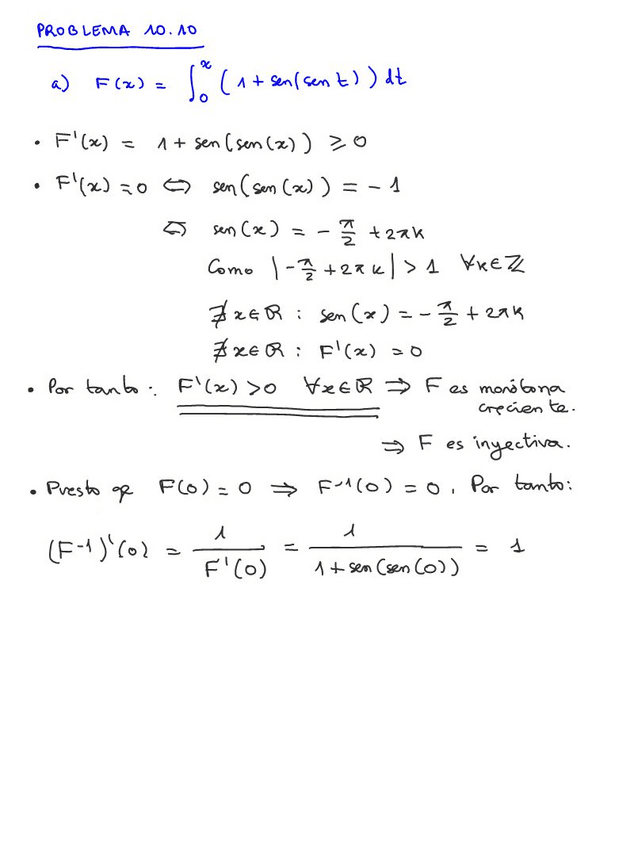 PROBLEMA 10.10
a) F(x) = ∫₀ˣ (1 + sen(sen t)) dt
• F'(x) = 1 + sen(sen(x)) ≥ 0
• F'(x) = 0 ⇔ sen(sen(x)) = -1
⇔ sen(x) = -π/2 + 2πk
Como |-π/2 + 2πk| > 1 ∀k∈ℤ
∄x∈ℝ : sen(x) = -π/2 + 2πk
∄x∈ℝ : F'(x) = 0
• Por tanto: F'(x) > 0 ∀x∈ℝ ⇒ F es monótona
creciente.
⇒ F es inyectiva.
• Puesto qe F(0) = 0 ⇒ F⁻¹(0) = 0. Por tanto:
(F⁻¹)'(0) = 1/F'(0) = 1/(1 + sen(sen(0))) = 1